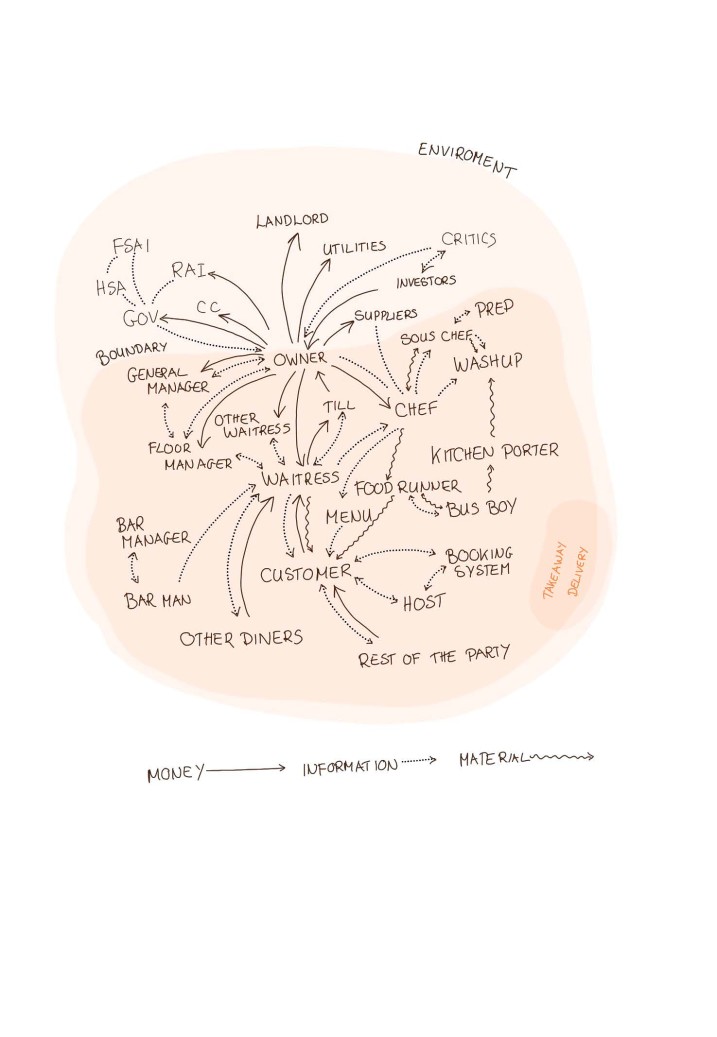 ENVIROMENT
LANDLORD
FSAI
UTILITIES
CRITICS
RAI
HSA
INVESTORS
CC
GOV
SUPPLIERS
PREP
SOUS CHEF
BOUNDARY
OWNER
WASHUP
GENERAL
MANAGER
TILL
CHEF
OTHER
WAITRESS
FLOOR
MANAGER
KITCHEN PORTER
WAITRESS
FOOD RUNNER
MENU
BUS BOY
BAR
MANAGER
BOOKING
SYSTEM
CUSTOMER
TAKEAWAY
DELIVERY
BAR MAN
HOST
OTHER DINERS
REST OF THE PARTY
MONEY
INFORMATION
MATERIAL